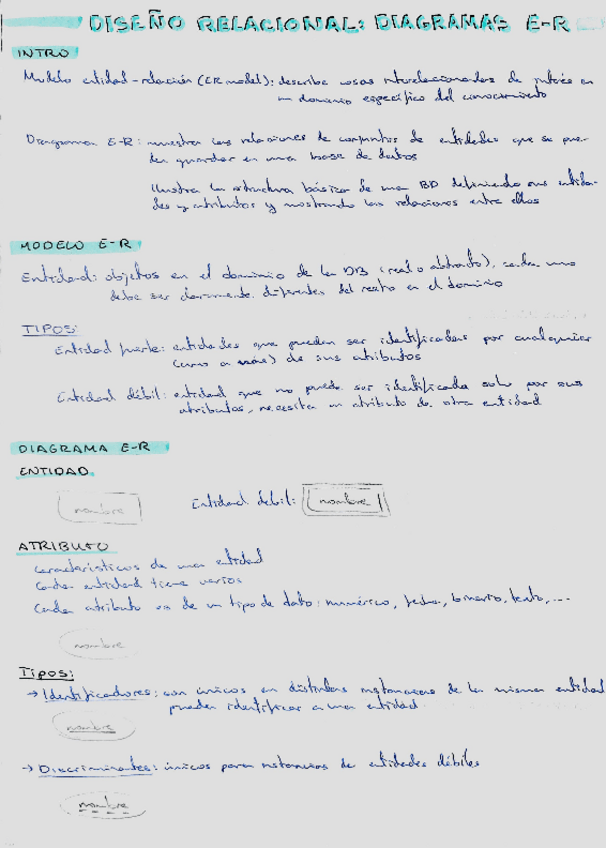 DISEÑO RELACIONAL: DIAGRAMAS E-R
INTRO
Modelo entidad-relación (ER model): describe cosas interrelacionadas de interés en
un dominio específico del conocimiento
Diagrama E-R: muestra las relaciones de conjuntos de entidades que se pue-
den guardar en una base de datos
Ilustra la estructura básica de una BD definiendo sus entida-
des y atributos y mostrando las relaciones entre ellos
MODELO E-R
Entidad: objetos en el dominio de la DB (real o abstracto), cada uno
debe ser claramente diferentes del resto en el dominio
TIPOS:
Entidad fuerte: entidades que pueden ser identificadas por cualquier
(uno o más) de sus atributos
Entidad débil: entidad que no puede ser identificada solo por sus
atributos, necesita un atributo de otra entidad
DIAGRAMA E-R
ENTIDAD
nombre Entidad débil: nombre
ATRIBUTO
Características de una entidad
Cada entidad tiene varios
Cada atributo es de un tipo de dato: numérico, fecha, binario, texto, ...
nombre
Tipos:
→ Identificadores: son únicos en distintas instancias de la misma entidad
pueden identificar a una entidad.
nombre
→ Discriminantes: únicos para instancias de entidades débiles
nombre